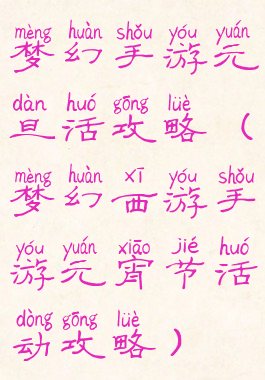 mèng huàn shǒu yóu yuán
梦幻手游元
dàn huó gōng lüè
旦活攻略（
mèng huàn xī yóu shǒu
梦幻西游手
yóu yuán xiāo jié huó
游元宵节活
dòng gōng lüè
动攻略）